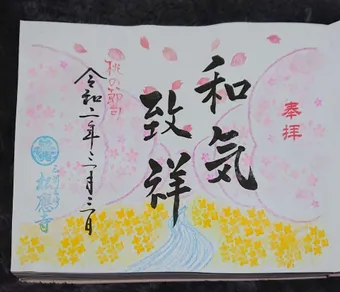 奉拝
和気
致祥
桃の節句
令和二年三月三日
松應寺